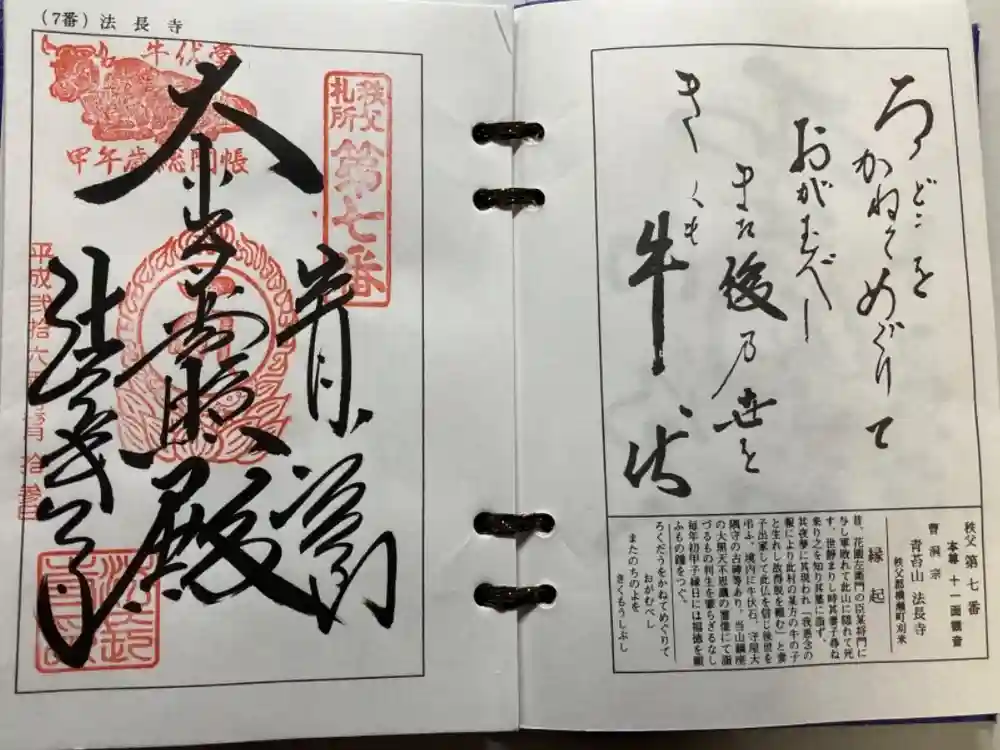 （7番）法長寺
牛伏堂
甲午歳総開帳
秩父
札所
第七番
大
光
殿
法長寺
ろくどうを
かねてめぐりて
おがむべし
また後乃世を
きくも
牛伏
秩父 第七番
本尊 十一面観音
曹洞宗
青苔山 法長寺
秩父郡横瀬町苅米
縁起
昔、花園左衛門の臣某将門に
与し軍敗れて此山に隠れて死
す。世静まりし時其妻子尋ね
来り之を知り其墓に詣ず。
其夜夢に其現われ「我悪念の
報により此村の某方の牛の子
と生れし故得脱を頼む」と妻
子出家して此仏を信じ後世を
弔ふ、境内に牛伏石、守屋大
隅守の古碑等あり。当山鎮座
の大黒天不思議の霊像にて詣
づるもの利生を蒙らざるなし
毎年初甲子縁日には福徳を願
ふもの踵をつぐ。
ろくだうをかねてめぐりて
おがむべし
またのちのよを
きくもうしぶし